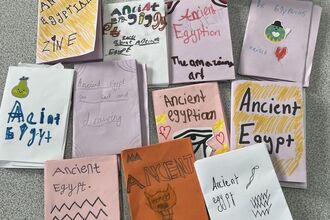 Ancient
egyptian
ZINE
Ancient
egypt
Ancient
Egyptian
The amazing
art
Egyptians
Aciant
Egypt
Ancient Egypt
Drawing
Ancient
egyptian
Ancient
Egypt
Ancient
Egypt.
ANCIENT
Ancient
egypt